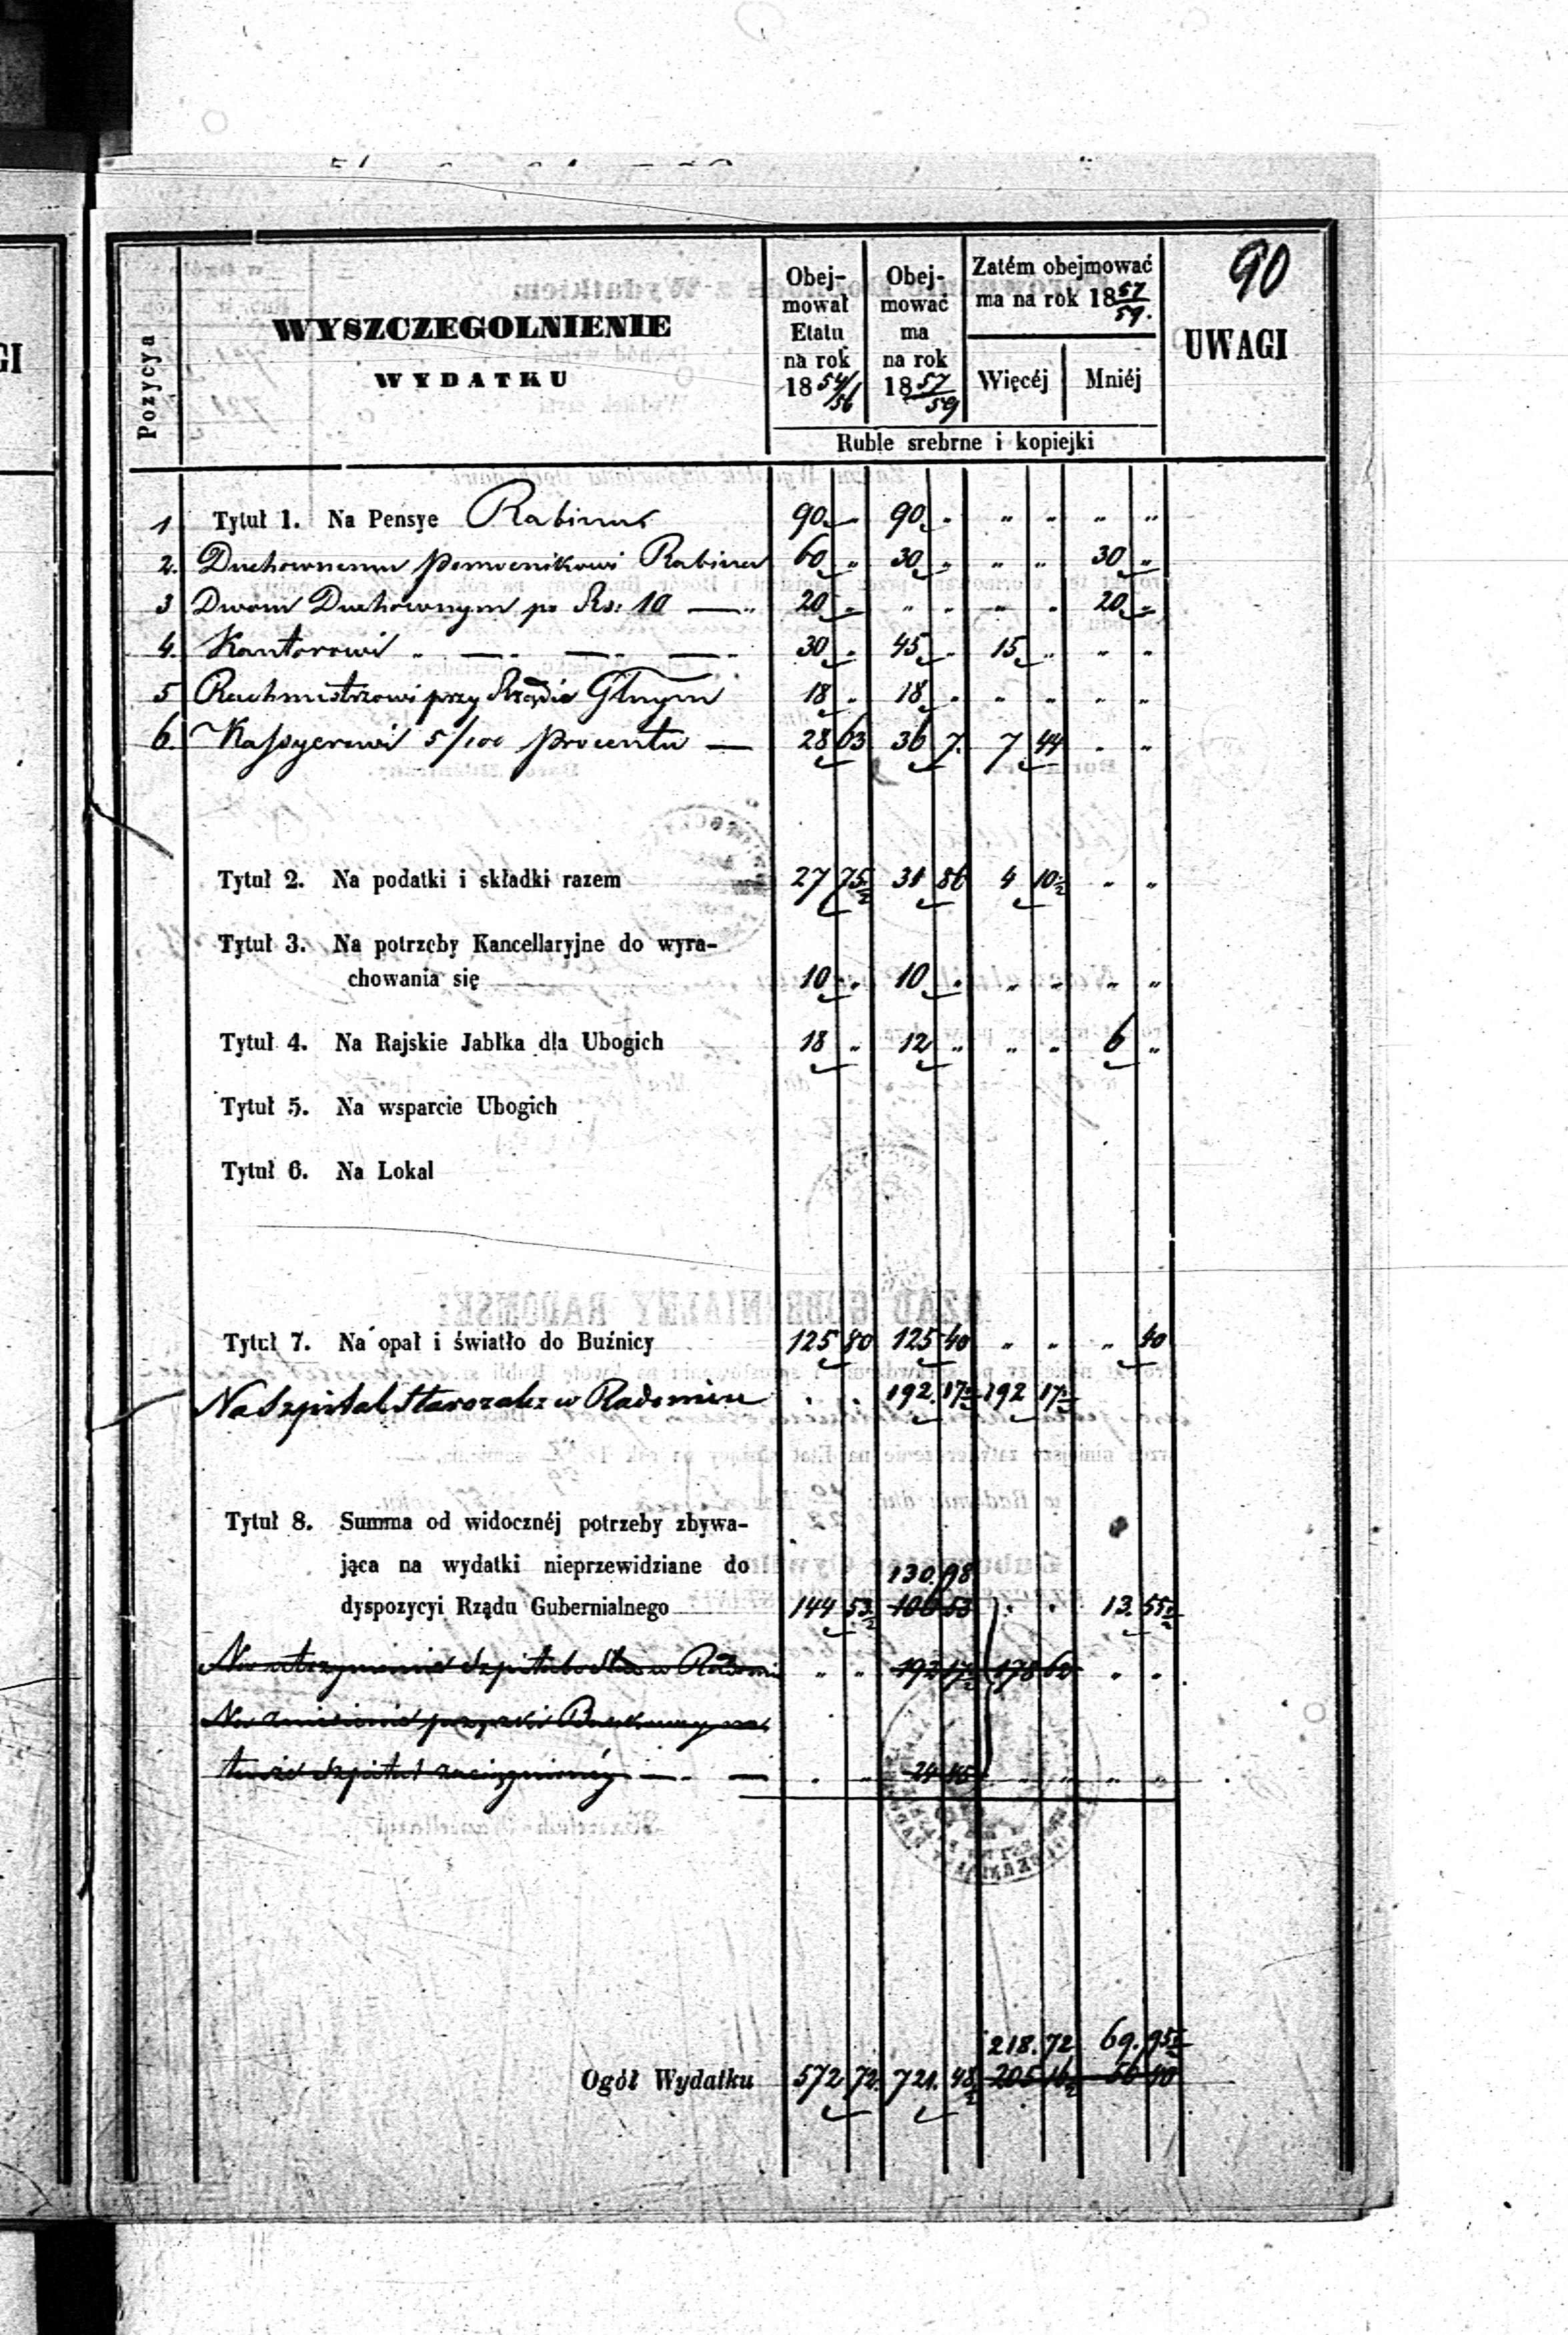 90
Pozycya
WYSZCZEGOLNIENIE
WYDATKU
Obej-
mował
Etatu
na rok
18 54/56
Obej-
mować
ma
na rok
18 57/59
Zatém obejmować
ma na rok 18 57/59.
Więcéj Mniéj
UWAGI
Ruble srebrne i kopiejki
1 Tytuł 1. Na Pensye Rabinus 90 „ 90 „ „ „ „ „
2. Duchownemu Pomocnikowi Rabina 60 „ 30 „ „ „ 30 „
3 Dwom Duchownym po Rs: 10 — 20 „ „ „ „ „ 20 „
4. Kantorowi „ — — — 30 „ 45 „ 15 „ „ „
5 Rachmistrzowi przy Rządzie Głnym 18 „ 18 „ „ „ „ „
6. Kassyerowi 5/100 Procentu — 28 63 36 7. 7 44 „ „
Tytuł 2. Na podatki i składki razem 27 75½ 31 86 4 10½ „ „
Tytuł 3. Na potrzeby Kancellaryjne do wyra-
chowania się 10 „ 10 „ „ „ „ „
Tytuł 4. Na Rajskie Jabłka dla Ubogich 18 „ 12 „ „ „ 6 „
Tytuł 5. Na wsparcie Ubogich
Tytuł 6. Na Lokal
Tytuł 7. Na opał i światło do Buźnicy 125 80 125 40 „ „ „ 40
Na Szpital Starozak: w Radomiu . . 192. 17½ 192 17½
Tytuł 8. Summa od widocznéj potrzeby zbywa-
jąca na wydatki nieprzewidziane do
130. 98
dyspozycyi Rządu Gubernialnego 144 53½ 106 53 . . 13. 55½
Na utrzymanie Szpitala Star w Radomiu „ „ 192 17½ 178 62 „ „
Na
tenże Szpital zaciągnionéj — — . „ 24 45 „ „ „ „
218. 72 69. 95½
Ogół Wydatku 572 72. 721. 48½ 205 16½ 56 40